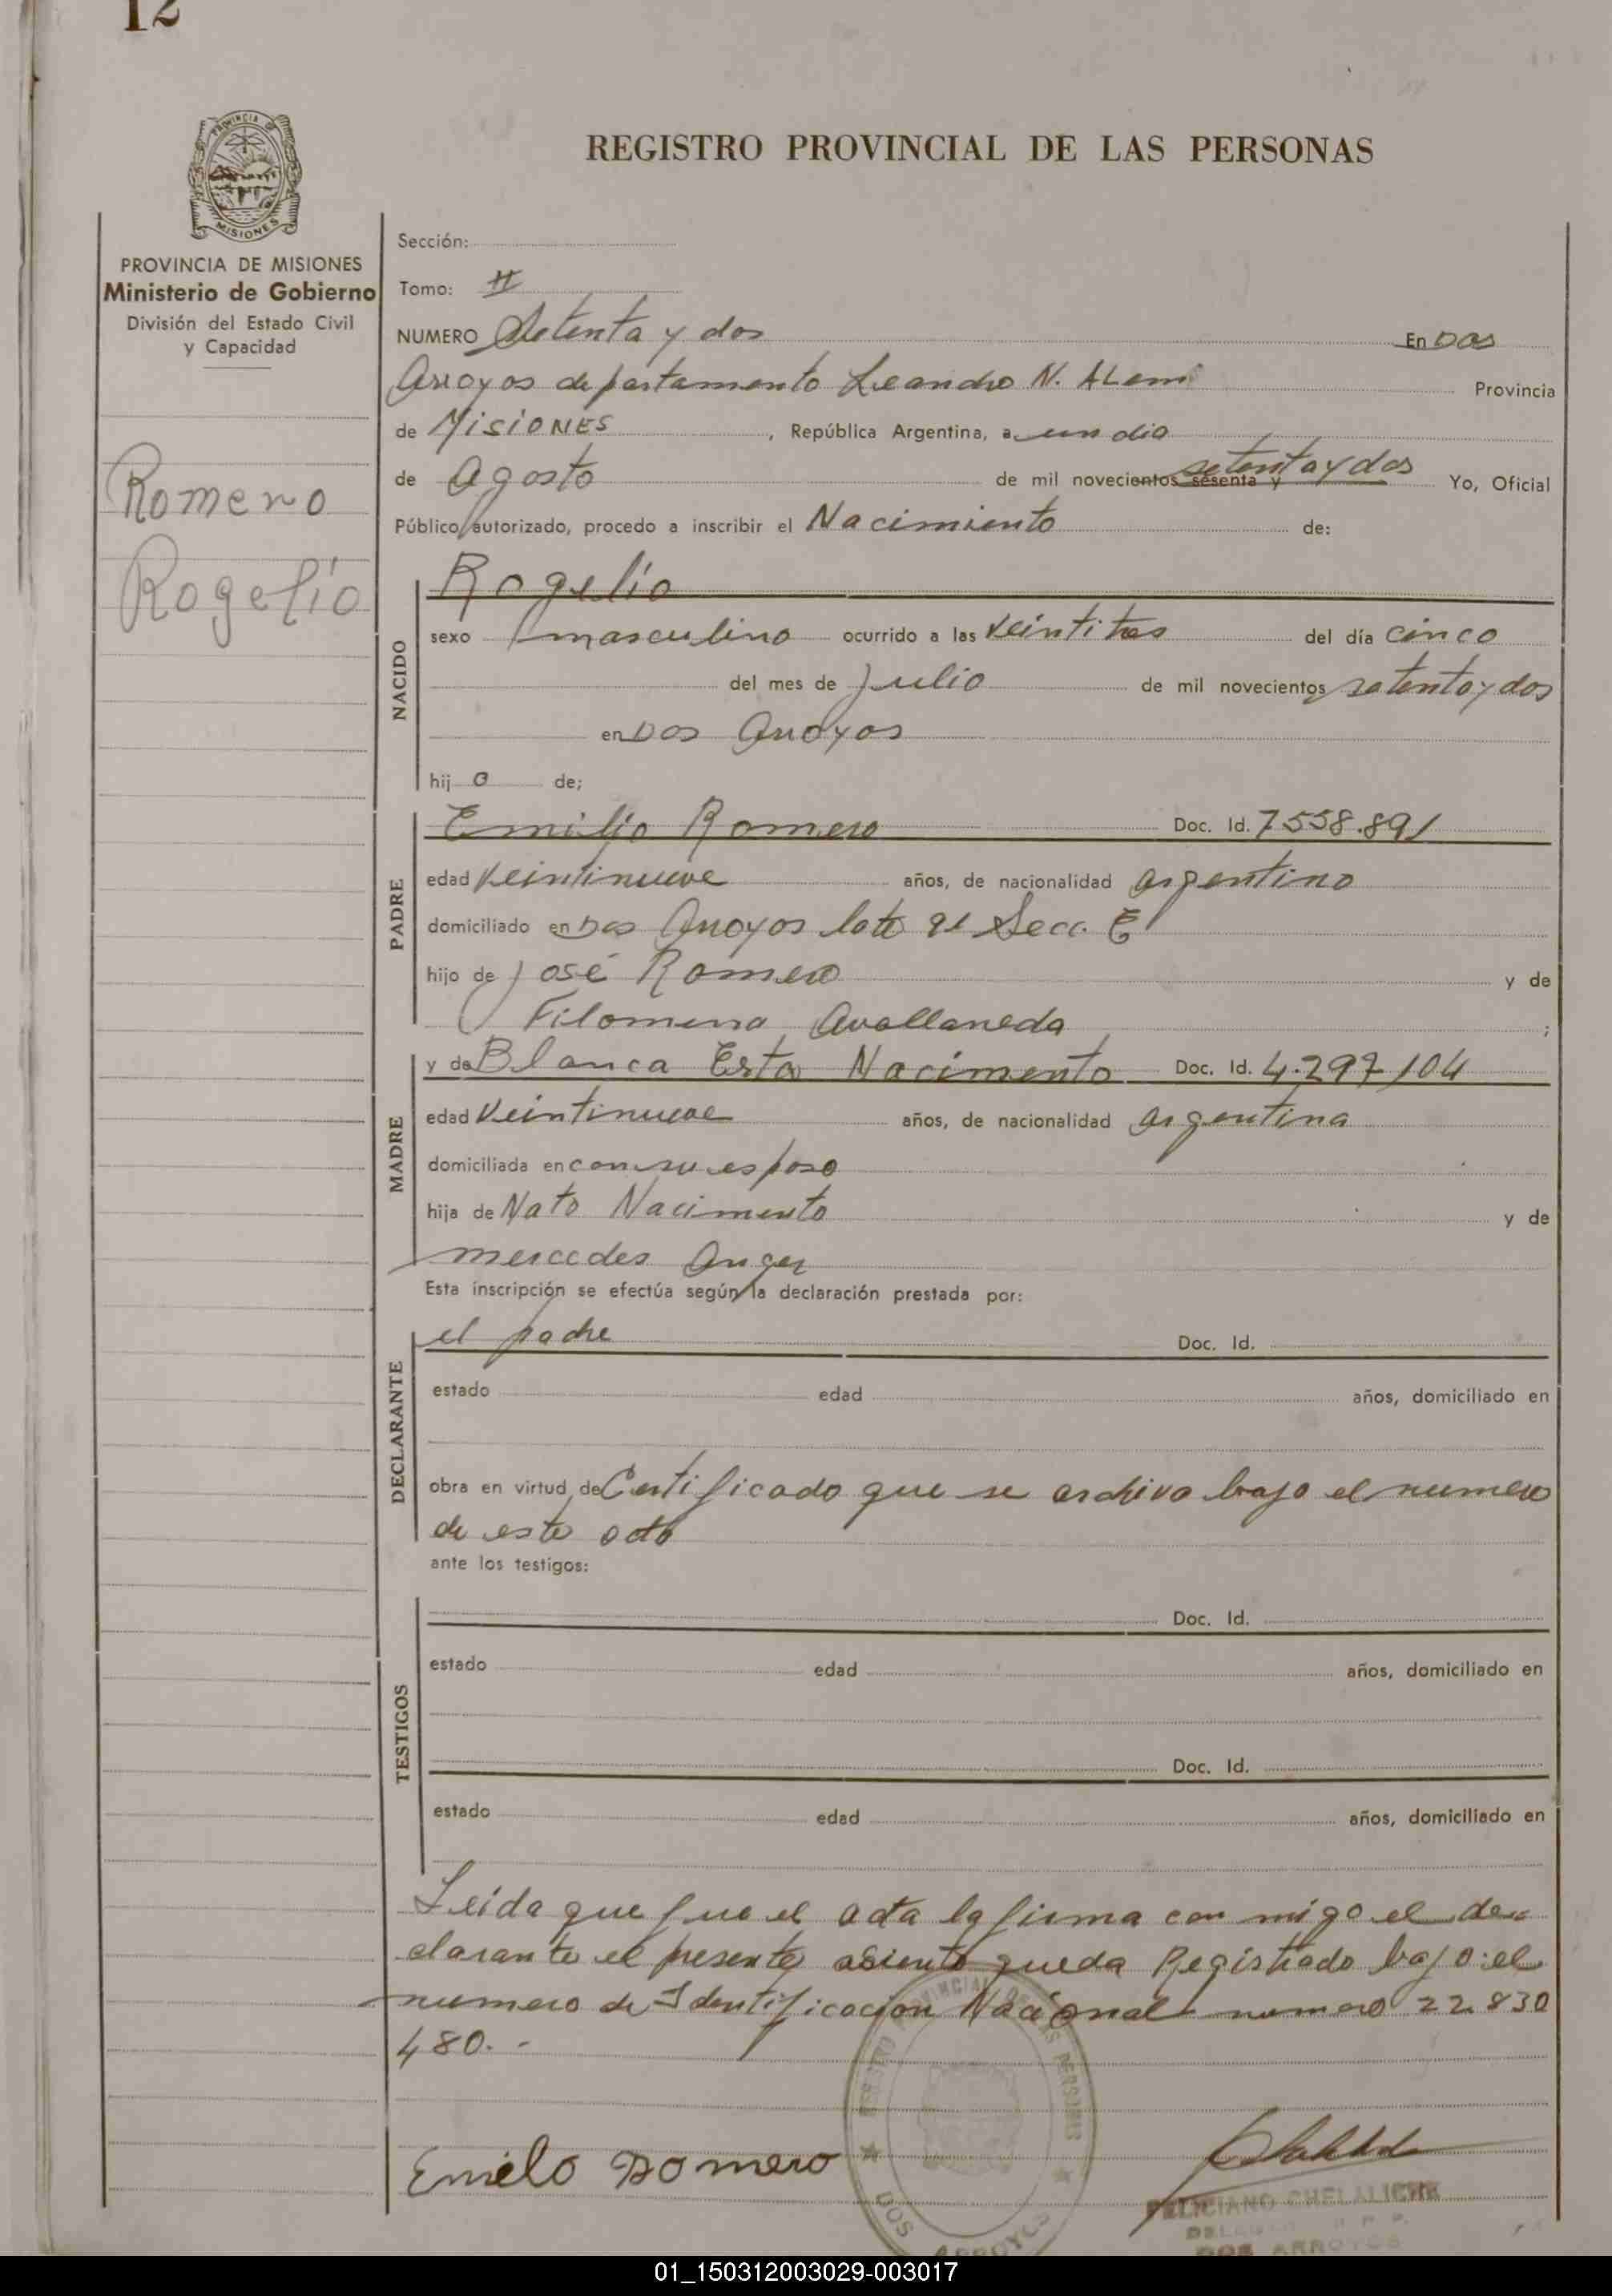 12
PROVINCIA DE
MISIONES
REGISTRO PROVINCIAL DE LAS PERSONAS
PROVINCIA DE MISIONES
Ministerio de Gobierno
División del Estado Civil
y Capacidad
Romero
Rogelio
Sección:
Tomo: II
NUMERO Setenta y dos En Dos
Arroyos departamento Leandro N. ALem Provincia
de MISIONES, República Argentina, a un dia
de Agosto de mil novecientos sesenta y setenta y dos Yo, Oficial
Público autorizado, procedo a inscribir el Nacimiento de:
NACIDO
Rogelio
sexo masculino ocurrido a las veintitres del día cinco
del mes de Julio de mil novecientos setenta y dos
en Dos Arroyos
hijo de;
PADRE
Emilio Romero Doc. Id. 7558.891
edad veintinueve años, de nacionalidad argentino
domiciliado en Dos Arroyos lote 91 Secc. E
hijo de José Romero y de
Filomena Avallaneda;
MADRE
y de Blanca Esta Nacimento Doc. Id. 4.297104
edad veintinueve años, de nacionalidad argentina
domiciliada en con su esposo
hija de Nato Nacimento y de
mercedes
Esta inscripción se efectúa según la declaración prestada por:
DECLARANTE
el padre Doc. Id.
estado edad años, domiciliado en
obra en virtud de Certificado que se archiva bajo el numero
de este acto
ante los testigos:
TESTIGOS
Doc. Id.
estado edad años, domiciliado en
Doc. Id.
estado edad años, domiciliado en
Leida que fue el acta la firma con migo el de=
clarante el presente asiento queda Registrado bajo el
numero de Identificacion Nacional numero 22.830
480.-
REGISTRO PROVINCIAL DE LAS PERSONAS
DOS ARROYOS
Emilo Romero
FELICIANO CHELALICHE
DOS ARROYOS
01_150312003029-003017